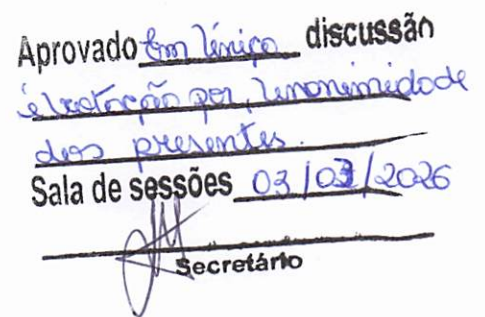 Aprovado em única discussão
e votação por unanimidade
dos presentes.
Sala de sessões 03/03/2026
Secretário